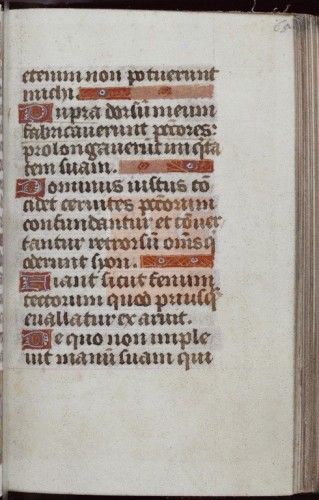 etenim non potuerunt
michi.
Supra dorsū meum
fabricauerunt pctōres:
prolongauerūt iniq̄ta
tem suam.
Dominus iustus cō
cidet ceruites pctōrum
confundantur et cōuer
tantur retrorsū om̄s q̄
oderunt syon.
Fiant sicut fenum
tectorum quod priusq̄
euallatur exaruit.
De quo non imple
uit manū suam qui